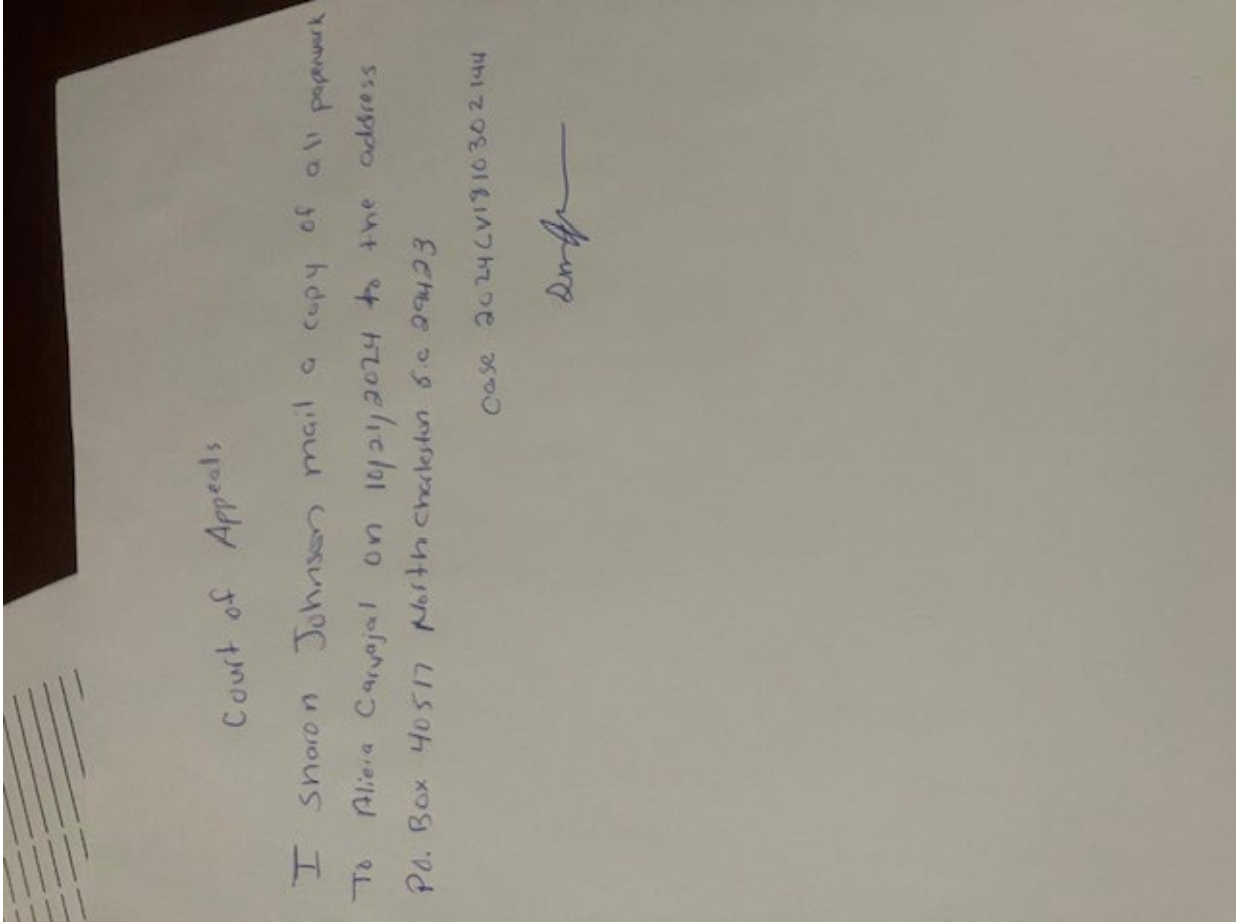 Court of Appeals
I Sharon Johnson mail a copy of all paperwork
To Aliera Carvajal on 10/21/2024 to the address
P.O. Box 40517 North Charleston S.C 29423
Case 2024CV1810302144